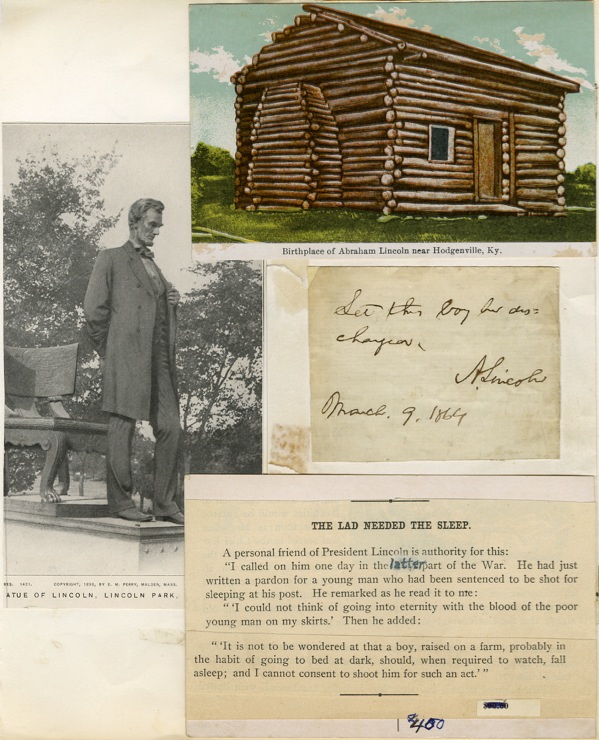 Birthplace of Abraham Lincoln near Hodgenville, Ky.
Let this boy be dis=
charged.
A. Lincoln
March. 9. 1864
1421. COPYRIGHT, 1895, BY E. M. PERRY, MALDEN, MASS.
ATUE OF LINCOLN, LINCOLN PARK,
THE LAD NEEDED THE SLEEP.
A personal friend of President Lincoln is authority for this:
"I called on him one day in the latter part of the War. He had just
written a pardon for a young man who had been sentenced to be shot for
sleeping at his post. He remarked as he read it to me:
"'I could not think of going into eternity with the blood of the poor
young man on my skirts.' Then he added:
"'It is not to be wondered at that a boy, raised on a farm, probably in
the habit of going to bed at dark, should, when required to watch, fall
asleep; and I cannot consent to shoot him for such an act.'"
$400